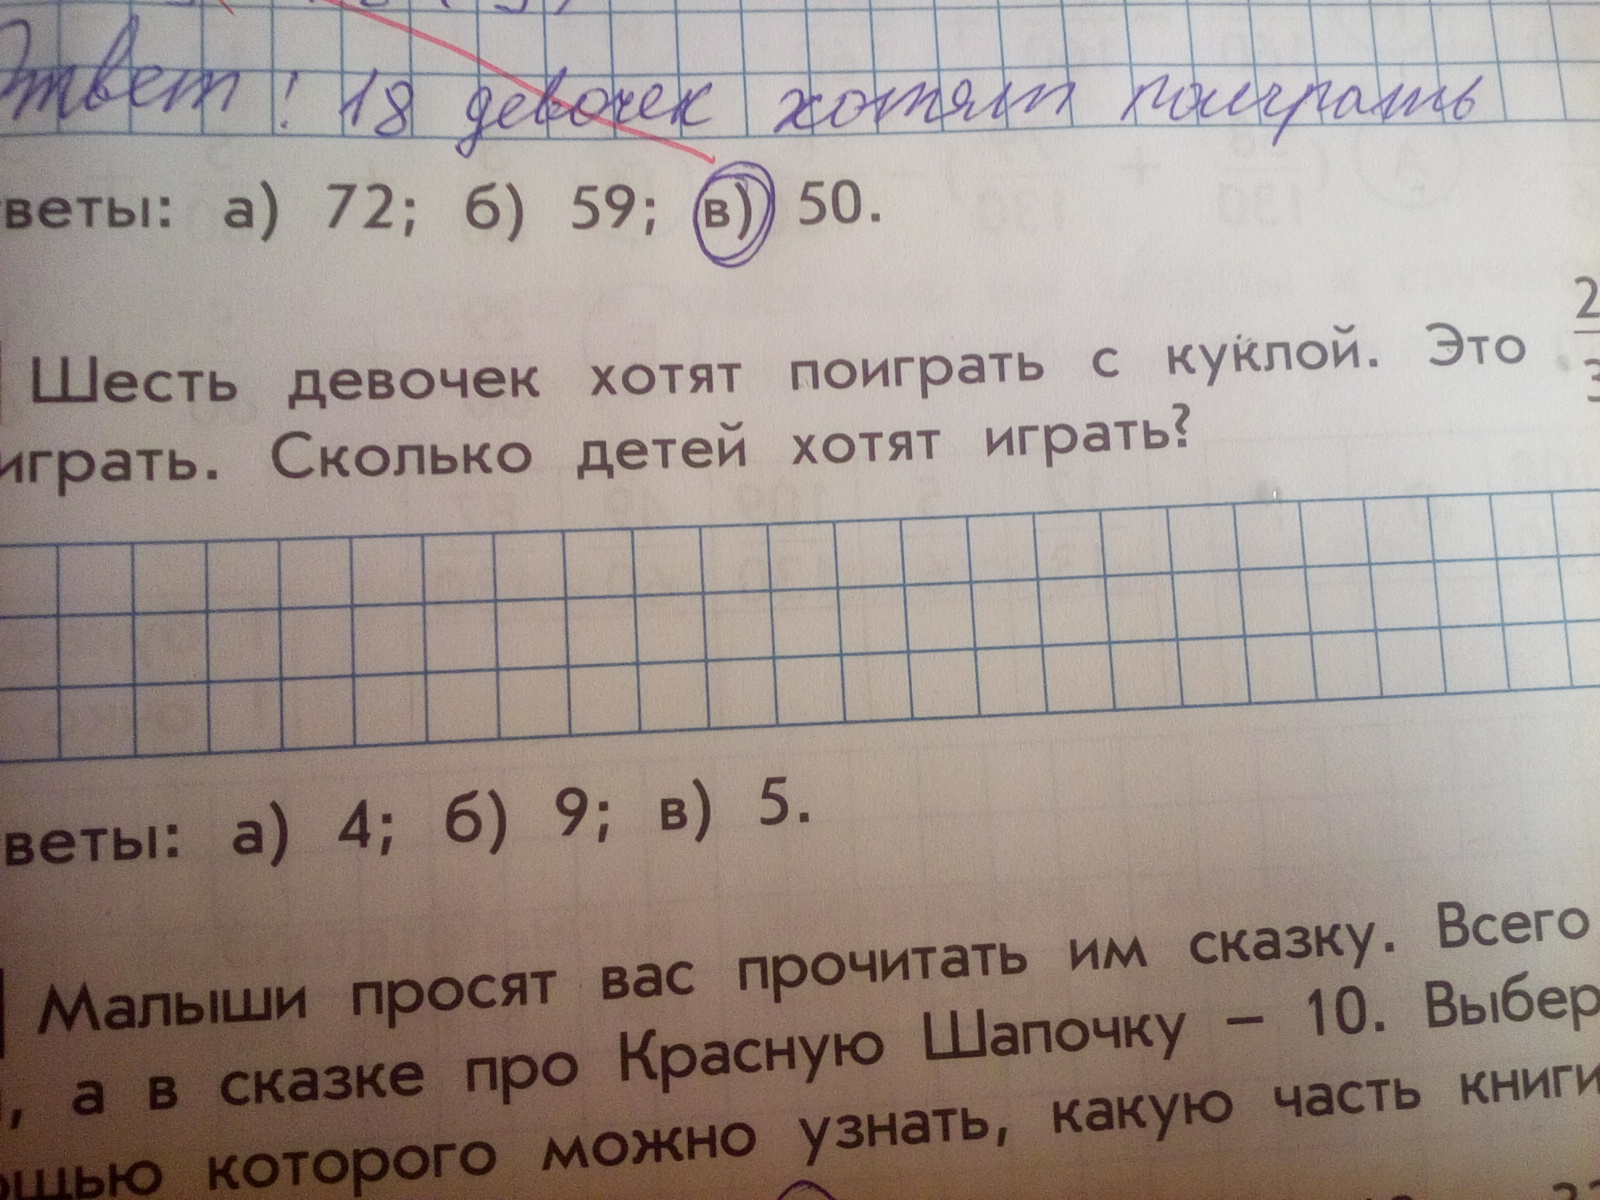 Ответ! 18 девочек хотят поиграть
веты: а) 72; б) 59; в) 50.
Шесть девочек хотят поиграть с куклой. Это 2/3
играть. Сколько детей хотят играть?
веты: а) 4; б) 9; в) 5.
Малыши просят вас прочитать им сказку. Всего
, а в сказке про Красную Шапочку – 10. Выбер
ощью которого можно узнать, какую часть книги